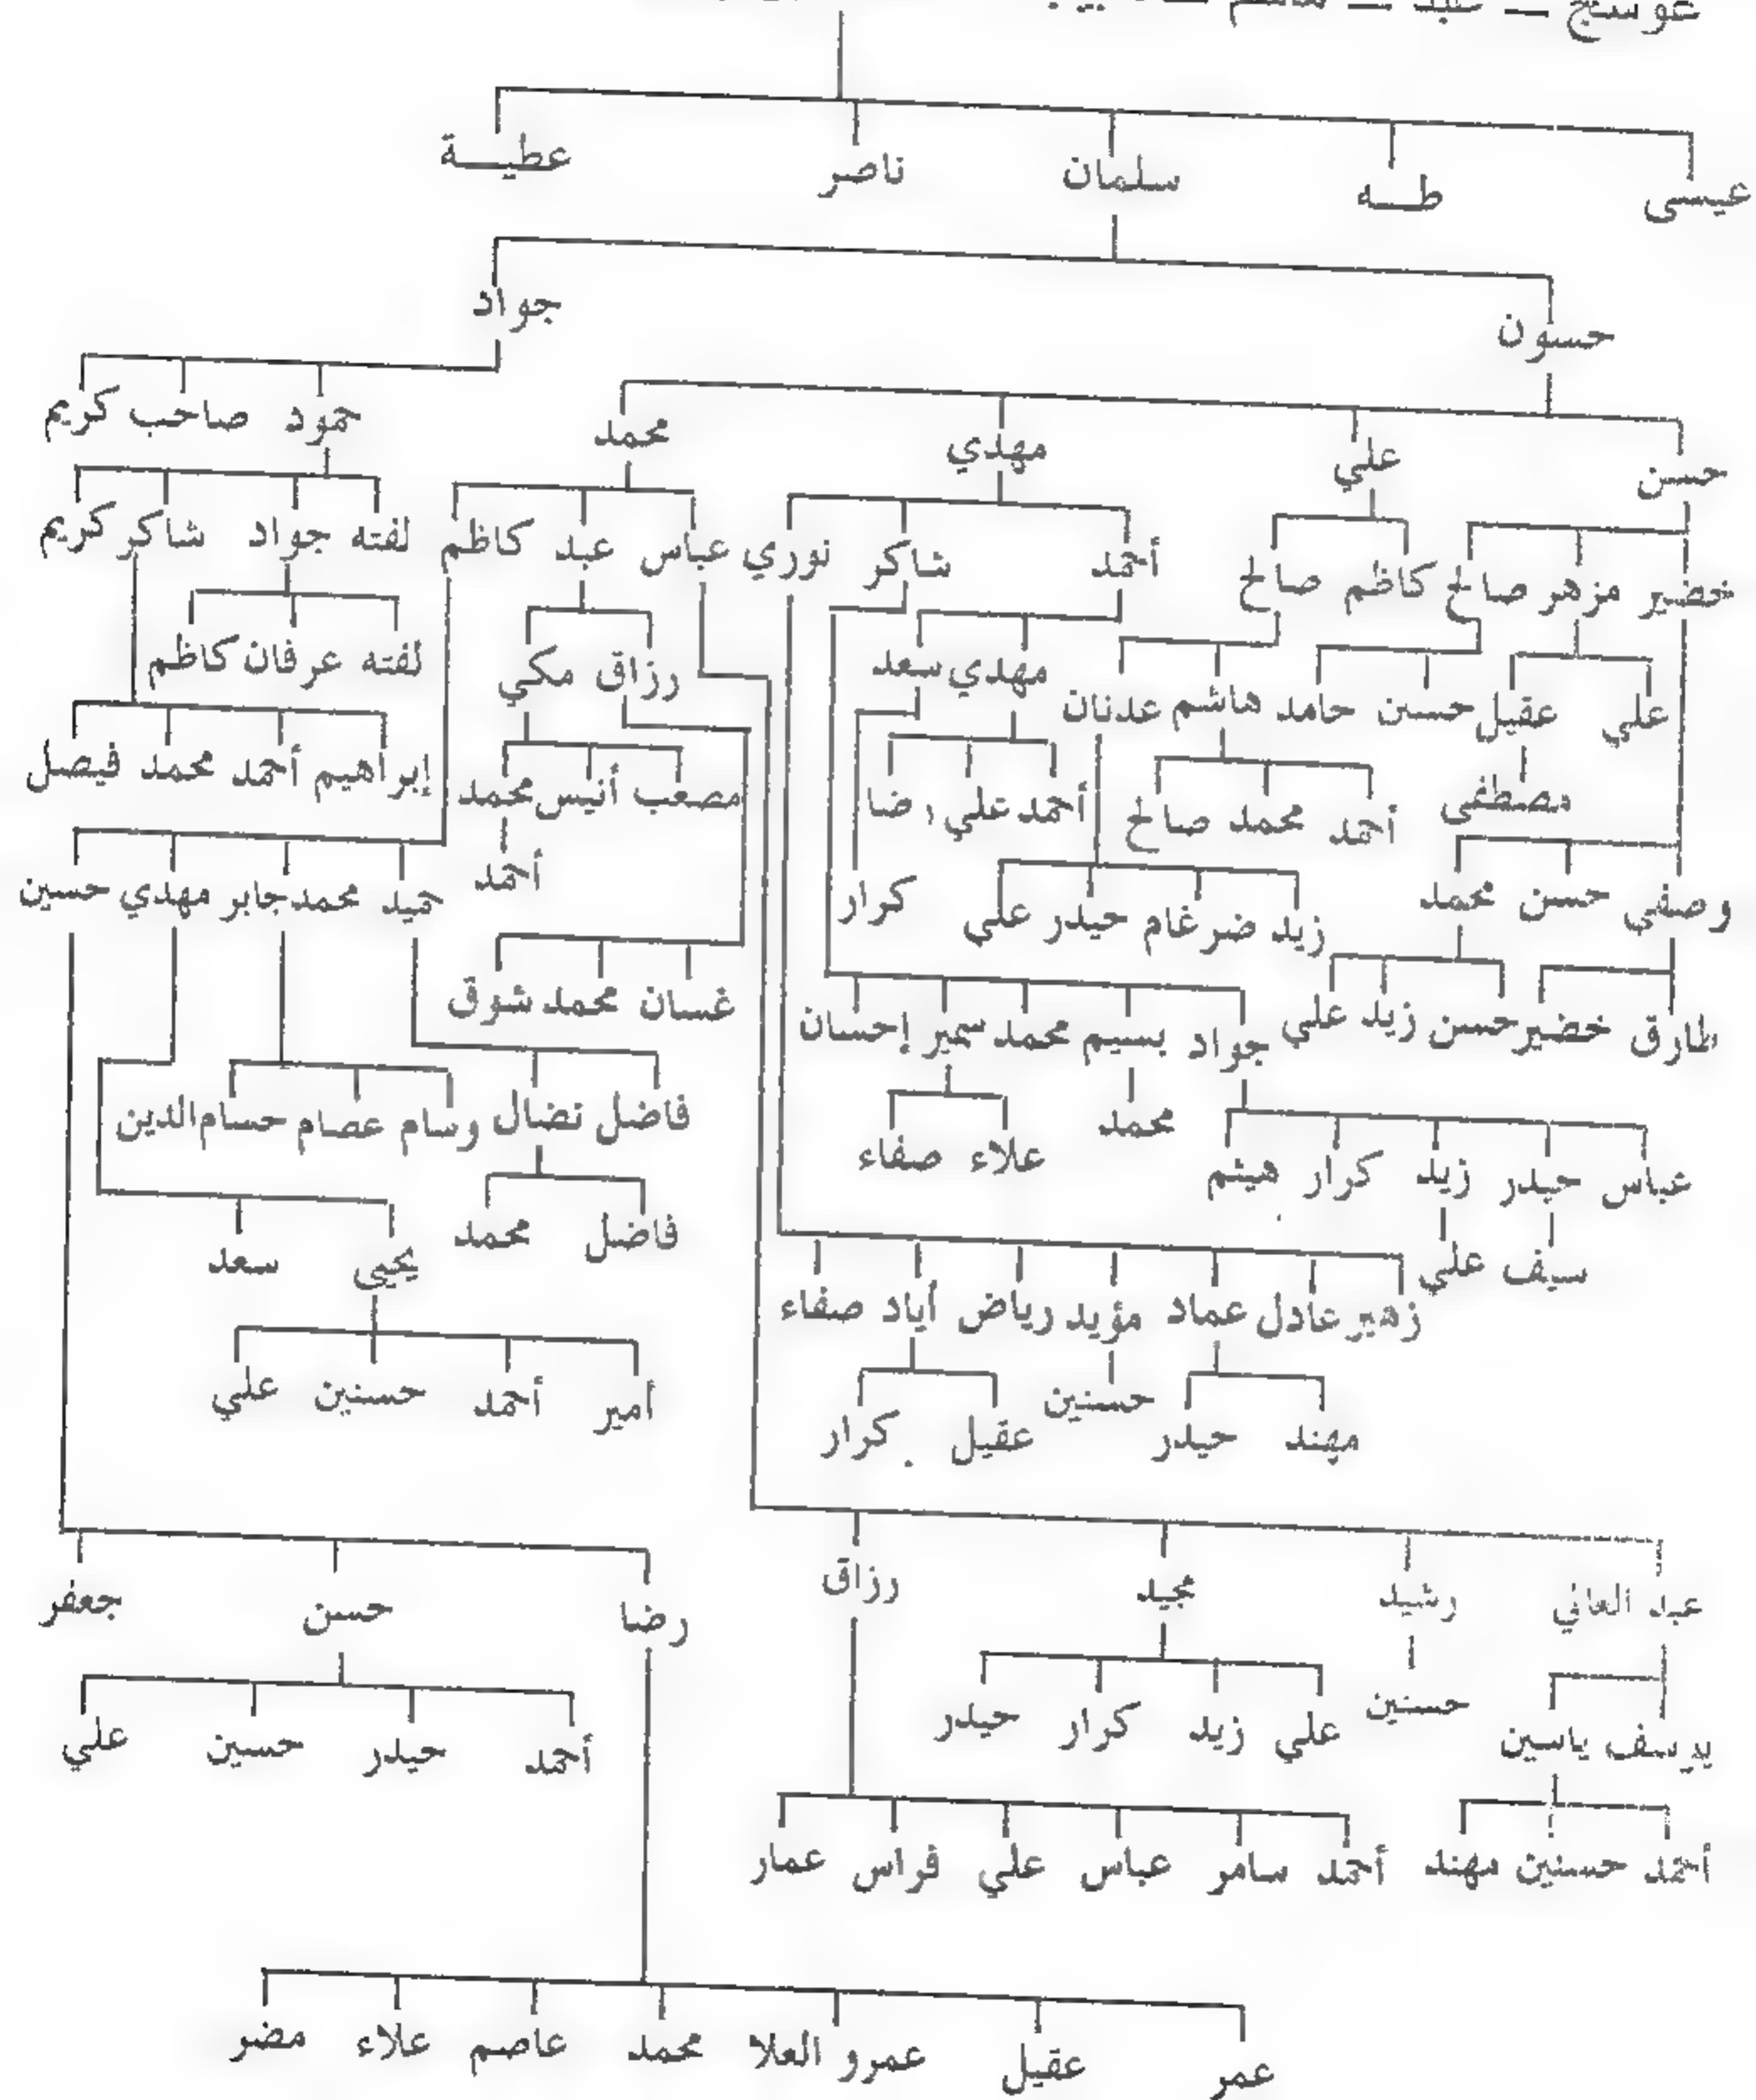 عيسى طه سلمان ناصر عطية
حسون جواد
حسن علي مهدي محمد حمود صاحب كريم
خضير مزهر صالح كاظم صالح أحمد شاكر نوري عباس عبد كاظم لفته جواد شاكر كريم
علي عقيل حسن حامد هاشم عدنان مهدي سعد رزاق مكي لفته عرفان كاظم
مصطفى أحمد محمد صالح أحمد علي رضا مصعب أنيس محمد إبراهيم أحمد محمد فيصل
وصفي حسن محمد زيد ضرغام حيدر علي كرار أحمد حميد محمد جابر مهدي حسين
طارق خضير حسن زيد علي جواد بسيم محمد سمير إحسان غسان محمد شوقي
عباس حيدر زيد كرار هيثم محمد علاء صفاء فاضل نضال وسام عصام حسام الدين
سيف علي فاضل محمد يحيى سعد
زهير عادل عماد مؤيد رياض أياد صفاء
مهند حيدر حسنين عقيل كرار أمير أحمد حسنين علي
رشيد مجيد رزاق رضا حسن جعفر
يوسف ياسين حسنين علي زيد كرار حيدر أحمد حيدر حسين علي
أحمد حسنين مهند أحمد سامر عباس علي فراس عمار
عمر عقيل عمرو العلا محمد عاصم علاء مضر